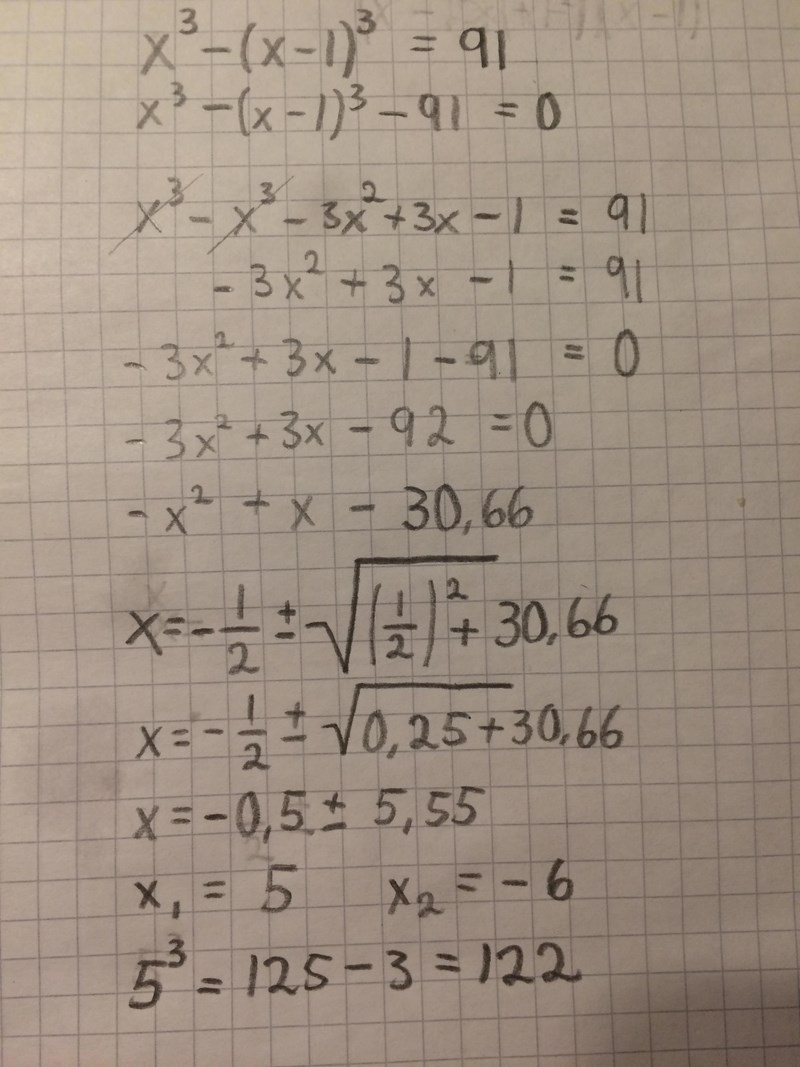 x³ - (x - 1)³ = 91
x³ - (x - 1)³ - 91 = 0
x³ - x³ - 3x² + 3x - 1 = 91
- 3x² + 3x - 1 = 91
- 3x² + 3x - 1 - 91 = 0
- 3x² + 3x - 92 = 0
- x² + x - 30,66
x = - 1/2 ± √(1/2)² + 30,66
x = - 1/2 ± √0,25 + 30,66
x = - 0,5 ± 5,55
x₁ = 5 x₂ = - 6
5³ = 125 - 3 = 122